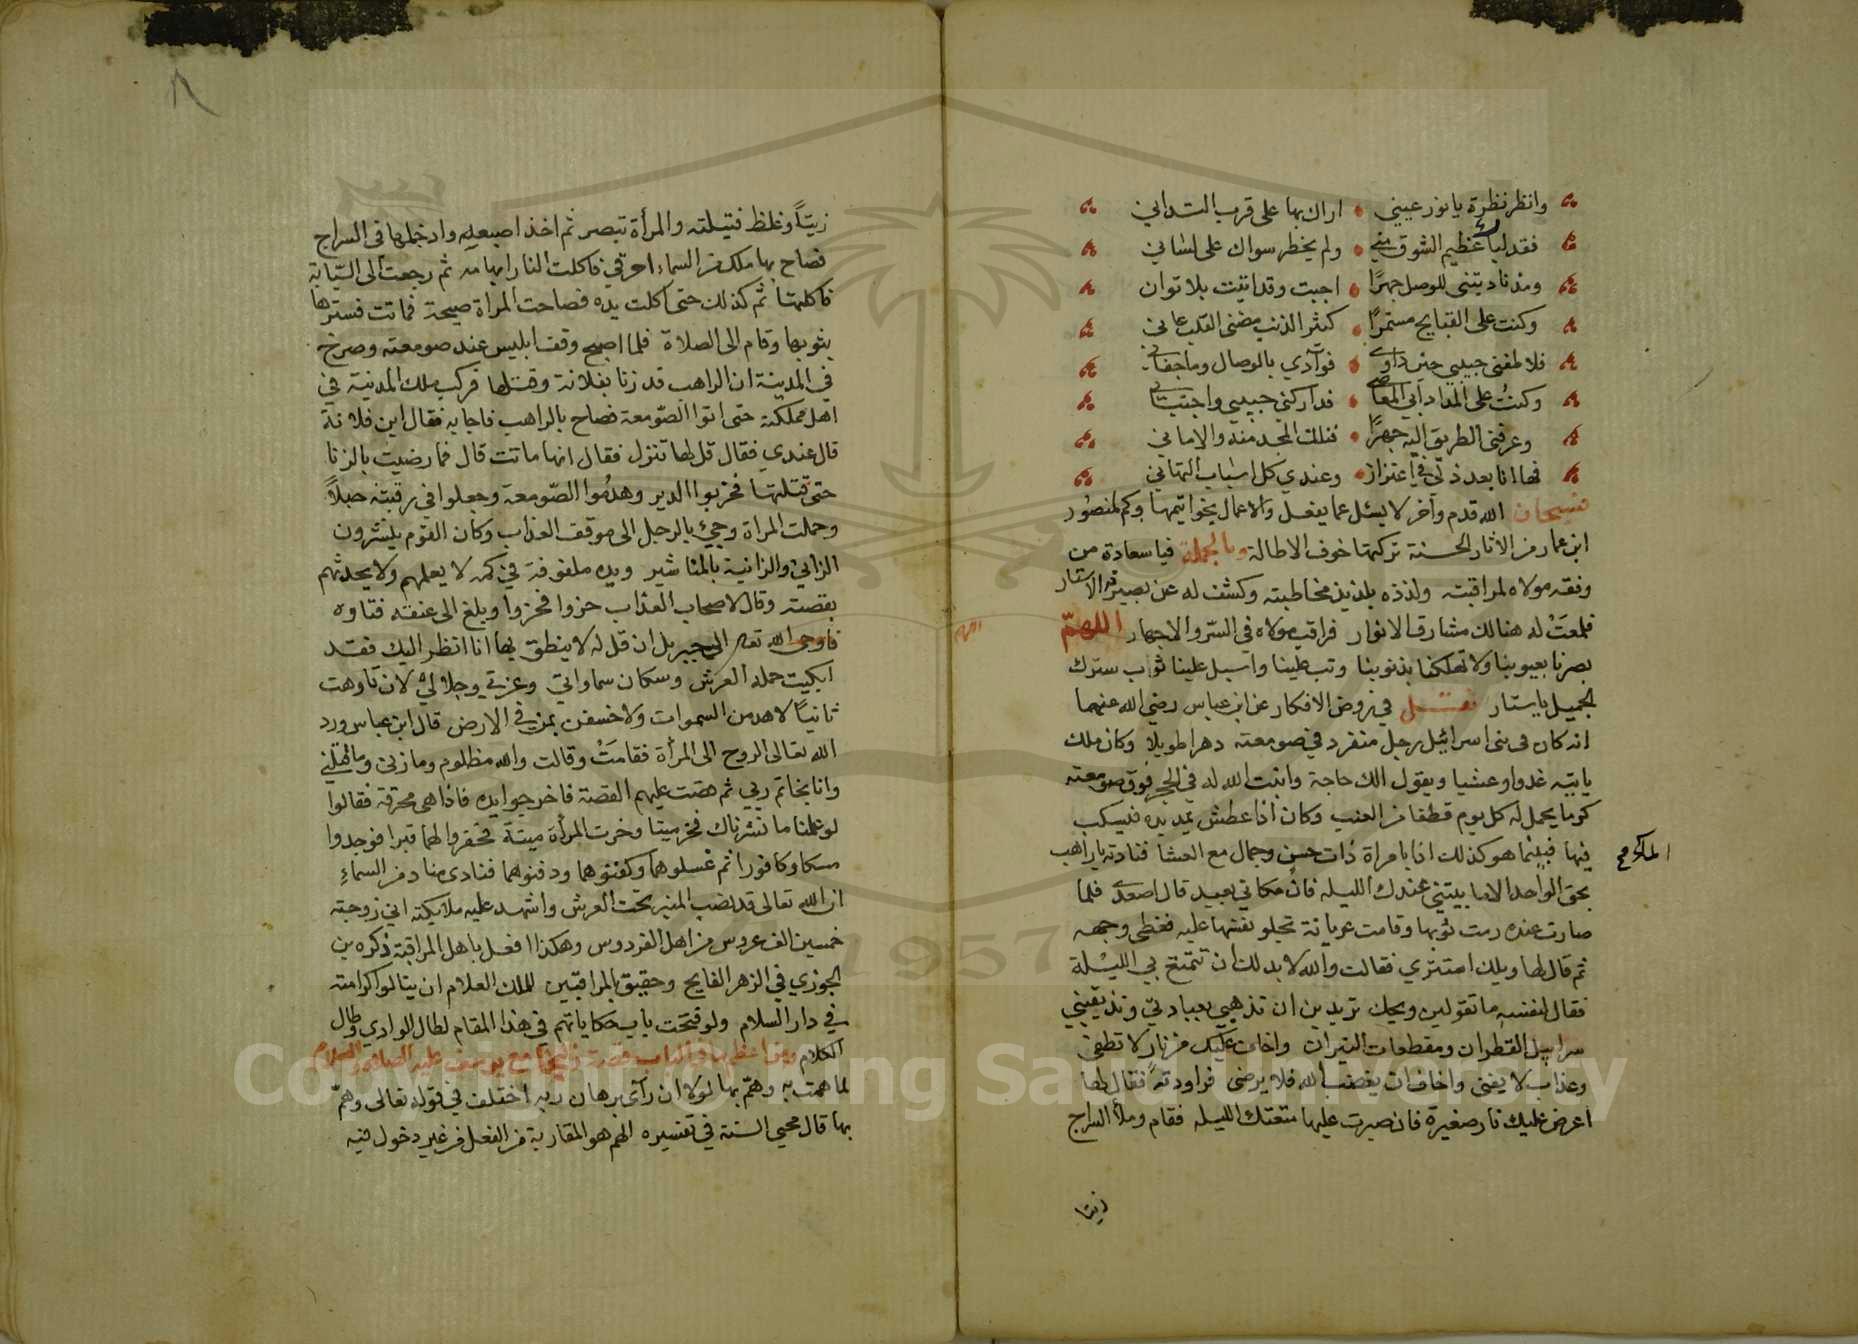 وانظر نظرة يا نور عيني • اراك بها على قرب التداني
فقد لبا عظيم الشوق مني • ولم يخطر سواك على لساني
ومذ ناديتني للوصل جهرًا • اجبت وقد اتيت بلا توان
وكنت على القبايح مستمرًا • كثير الذنب مضنى القلب عاني
فلا لمفنى حبيبي حين داوى • فوآدي بالوصال وما جفاني
وكنت على المداد آبى المعاصي • فداركني حبيبي واجتباني
وعرفني الطريق اليه جهرًا • فنلت المجد منه والاماني
فها انا بعد ذلي في اعتزاز • وعندي كل اسباب التهاني
فسبحان الله قدم وآخر لا يسئل عما يفعل والاعمال بخواتيمها وكم لمنصور
ابن عمار من الاثار الحسنة تركتها خوف الاطالة وبالجملة فيا سعادة من
وفقه مولاه لمراقبته ولذذه بلذيذ مخاطبته وكشف له عن بصيرته الاستار
فلمعت له هنالك مشارق الانوار فراقب مولاه في السر والاجهار اللهمّ
بصرنا بعيوبنا ولا تهلكنا بذنوبنا وتب علينا واسبل علينا ثواب سترك
الجميل يا ستار نقل في روض الافكار عن ابن عباس رضي الله عنهما
انه كان في بني اسرائيل رجل منفرد في صومعته دهرا طويلا وكان ملك
ياتيه غدوا وعشيا ويقول الك حاجة وانبت الله له في الحجر فوق صومعته
كرما يحمل له كل يوم قطفا من العنب وكان اذا عطش يمد يده فيسكب
الماء صح
فيها فبينما هو كذلك اذا بامراة ذات حسن وجمال مع العشا فنادته يا راهب
بحق الواحد الا ما بيتني عندك الليله فان مكاني بعيد قال اصعدي فلما
صارت عنده رمت ثوبها وقامت عريانة تجلو نفسها عليه فغطى وجهه
ثم قال لها ويلك استتري فقالت والله لا بد لك ان تتمتع بي الليلة
فقال لنفسه ما تقولين ويحك تريدين ان تذهبي بعبادتي وتذيقيني
سرابيل القطران ومقطعات النيران واخاف عليك من نار لا تطفى
وعذاب لا يفنى واخاف ان يغضب الله فلا يرضى فراودته فقال لها
اعرض عليك نار صغيرة فان صبرت عليها متعتك الليله فقام وملأ السراج
زيتا
اللهم
زيتًا وغلظ فتيلته والمرأة تبصر ثم اخذ اصبعه وادخلها في السراج
فصاح بها ملك من السماء احرقي فاكلت النار ابهامه ثم رجعت الى السبابة
فاكلتها ثم كذلك حتى اكلت يده فصاحت المراة صيحة فماتت فسترها
بثوبها وقام الى الصلاة فلما اصبح وقف ابليس عند صومعته وصرخ
في المدينة ان الراهب قد زنا بفلانة وقتلها فركب ملك المدينة في
اهل مملكته حتى اتوا الصومعة فصاح بالراهب فاجابه فقال اين فلانة
قال عندي فقال قل لها تنزل فقال انها ماتت قال فما رضيت بالزنا
حتى قتلتها فخربوا الدير وهدموا الصومعة وجعلوا في رقبته حبلاً
وحملت المراة وجيئ بالرجل الى موقف العذاب وكان القوم ينشرون
الزاني والزانية بالمناشير ويده ملفوفة في كمه لا يعلمهم ولا يحدثهم
بقصته وقال لاصحاب العذاب جزوا فجزوا وبلغ الى عنقه فتاوه
فاوحى الله تعالى الى جبريل ان قل له لا ينطق بها انا انظر اليك فقد
ابكيت حملة العرش وسكان سماواتي وعزتي وجلالي لان تاوهت
ثانيًا لاهدمن السموات ولاخسفن بمن في الارض قال ابن عباس ورد
الله تعالى الروح الى المرأة فقامت وقالت والله مظلوم وما زني وما قتلني
وانا بخاتم ربي ثم قصت عليهم القصة فاخرجوا يده فاذا هي محرقة فقالوا
لو علمنا ما نشرناك فخر ميتا وخرت المرأة ميتة فحفروا لهما قبرا فوجدوا
مسكا وكافورا ثم غسلوهما وكفنوهما ودفنوهما فنادى مناد من السماء
ان الله تعالى قد نصب المنبر تحت العرش واشهد عليه ملايكته اني زوجته
خمسين الف عروس من اهل الفردوس وهكذا افعل باهل المراقبة ذكره بن
الجوزي في الزهر الفايح وحقيق بالمراقبين للملك العلام ان ينالوا كرامته
في دار السلام ولو فتحت باب حكاياتهم في هذا المقام لطال الوادي وطال
الكلام ومن اعظم ما في الباب قصة زليخا مع يوسف عليه الصلاة والسلام
لما همت به وهمّ بها لولا ان رآى برهان ربه اختلف في قوله تعالى وهمّ
بها قال محيي السنة في تفسيره الهم هو المقاربة من الفعل من غير دخول فيه
Copyright © King Saud University
1957